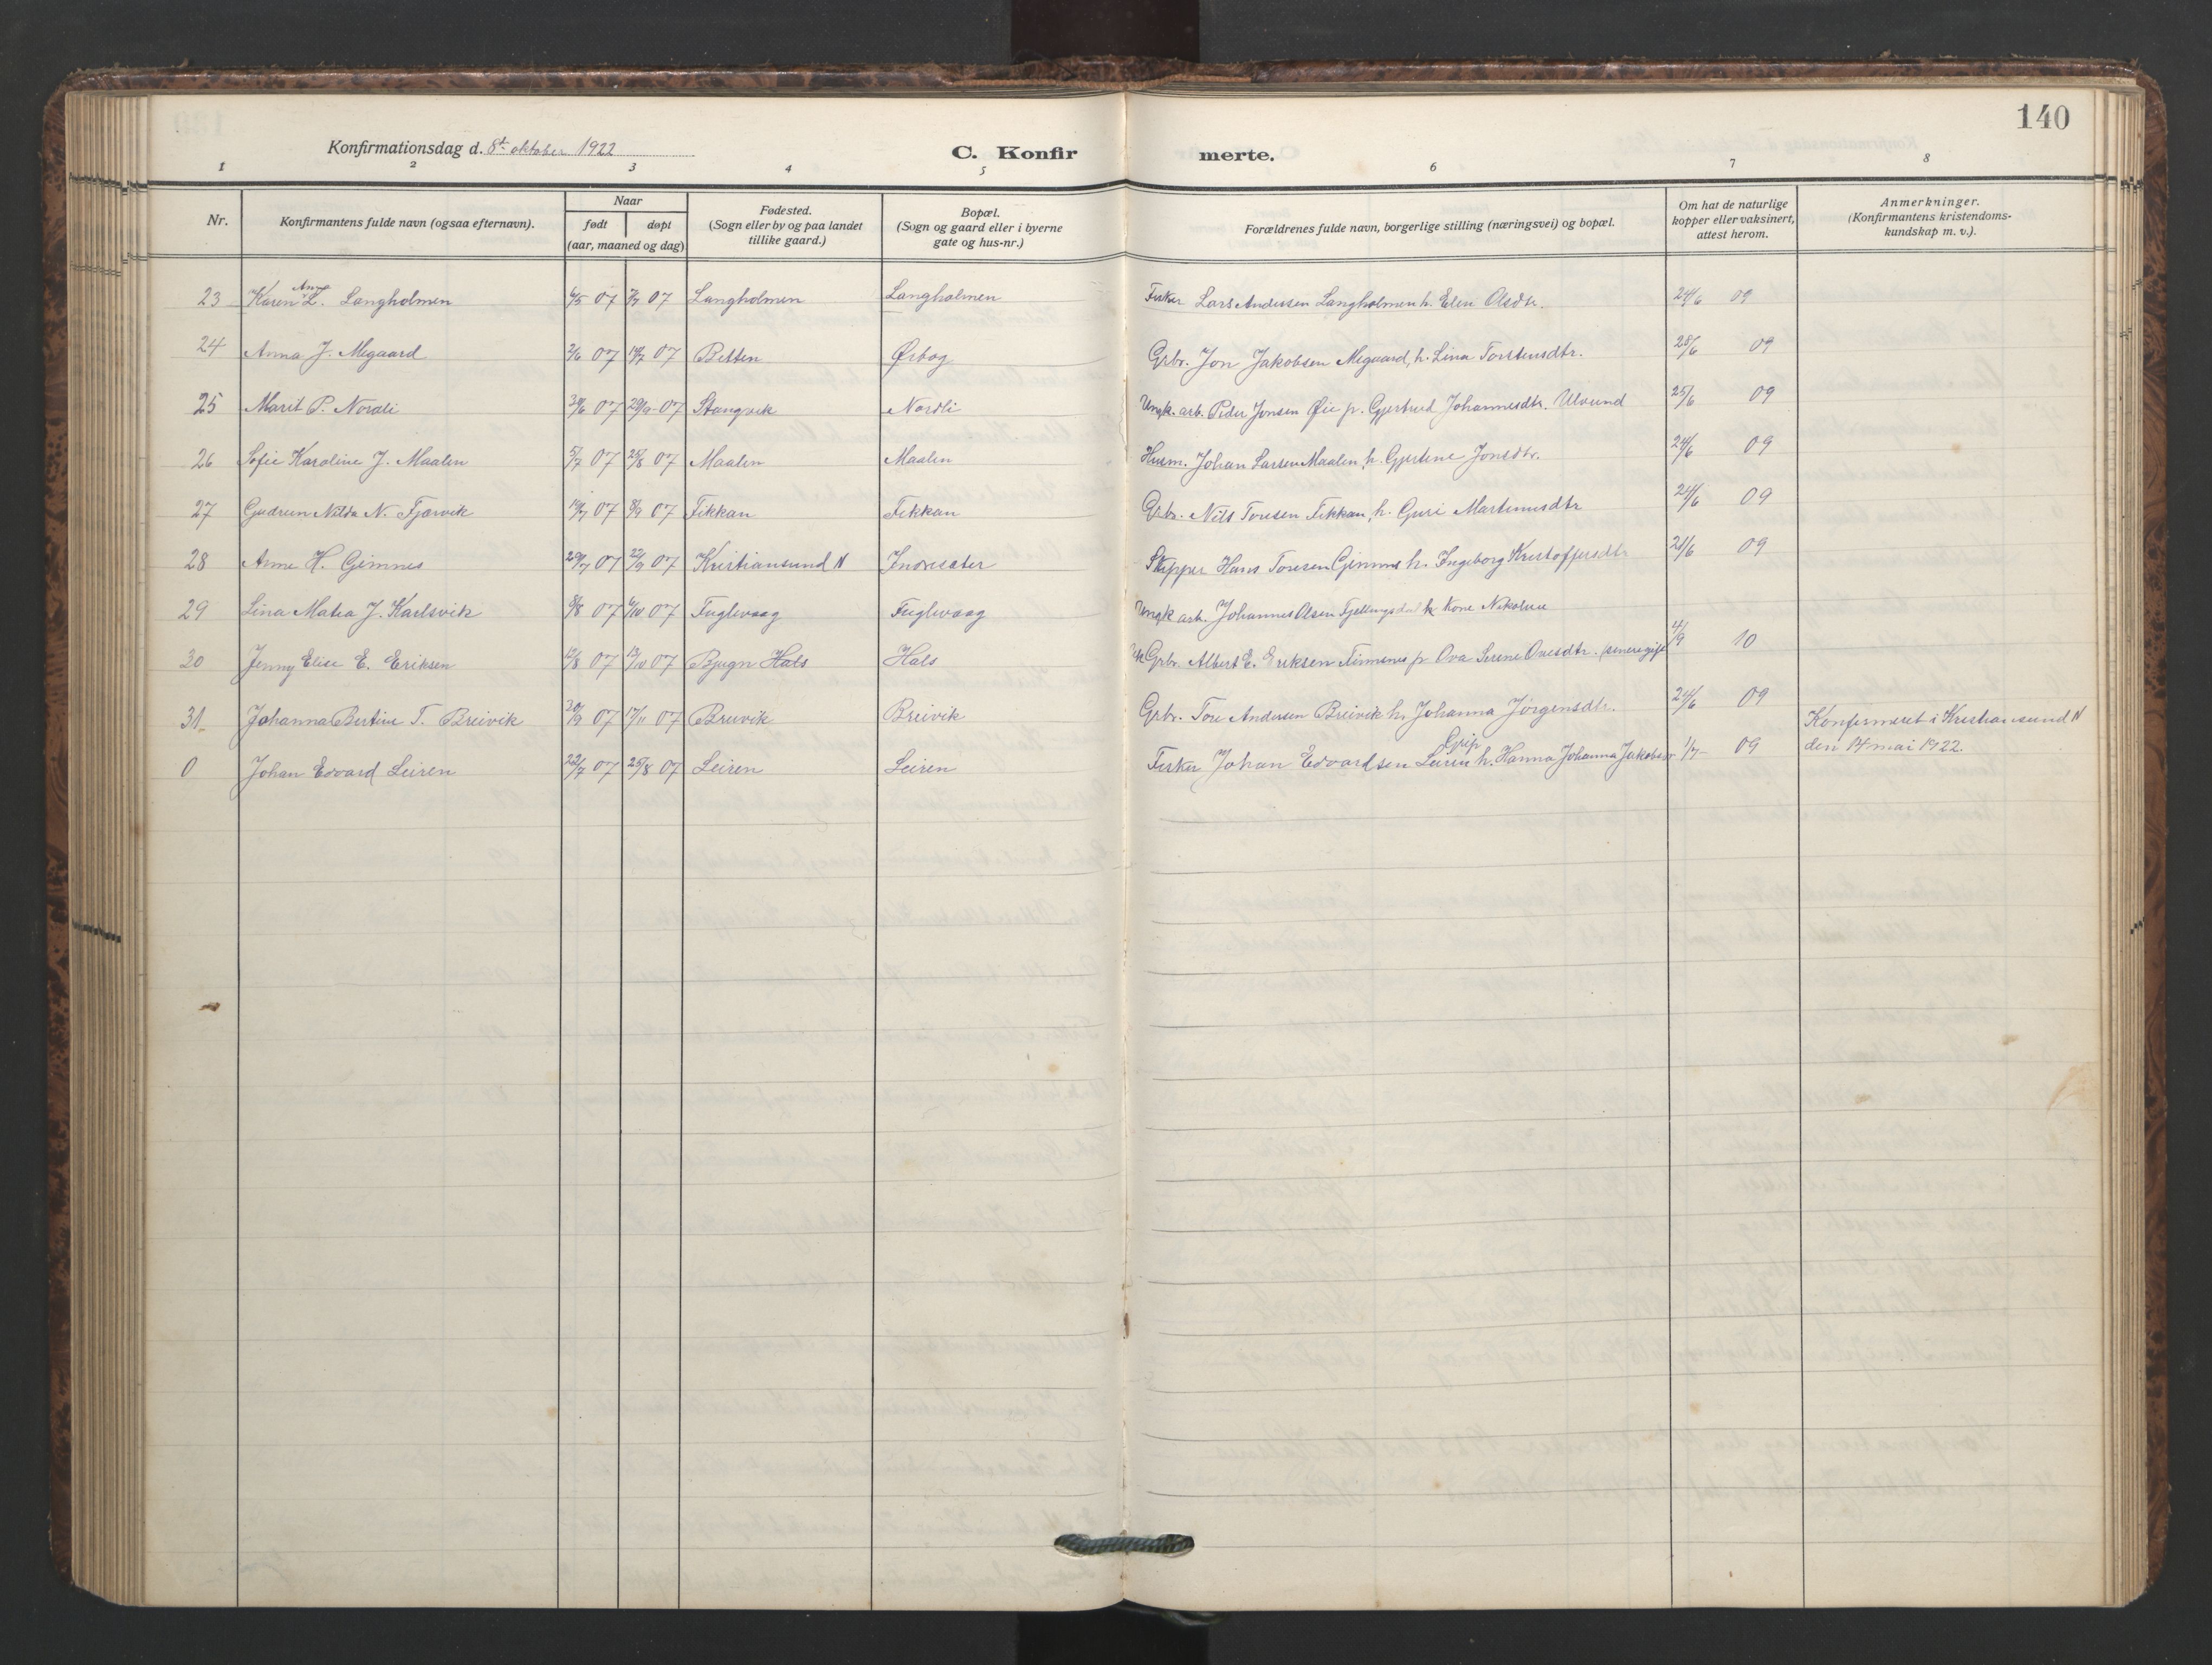 140
Konfirmationsdag d. 8de oktober 1922
C. Konfir merte.
1 2 3 4 5 6 7 8
Nr.
Konfirmantens fulde navn (ogsaa efternavn).
Naar
født døpt
(aar, maaned og dag)
Fødested.
(Sogn eller by og paa landet
tillike gaard.)
Bopæl.
(Sogn og gaard eller i byerne
gate og hus-nr.)
Forældrenes fulde navn, borgerlige stilling (næringsvei) og bopæl.
Om hat de naturlige
kopper eller vaksinert,
attest herom.
Anmerkninger.
(Konfirmantens kristendoms-
kundskap m. v.).
23 Karen Anna L. Langholmen 6/5 07 7/7 07 Langholmen Langholmen Fisker Lars Andersen Langholmen h. Elen Olsdtr. 24/6 09
24 Anna J. Megaard 2/6 07 14/7 07 Betten Ørbog Grbr. Jon Jakobsen Megaard, h. Lina Torstensdtr. 28/6 09
25 Marit P. Nordli 30/6 07 29/9 07 Stangvik Nordli Ungk. arb. Peder Jonsen Øie p. Gjertrud Johannesdtr. Ulvund 25/6 09
26 Sofie Karoline J. Maalen 5/7 07 25/8 07 Maalen Maalen Husm. Johan Larsen Maalen, h. Gjertine Jonsdtr. 24/6 09
27 Gudrun Nilda N. Tjarvik 19/7 07 8/9 07 Fikkan Fikkan Grbr. Nils Toresen Fikkan, h. Guri Martinusdtr 24/6 09
28 Anne H. Gimnes 29/7 07 22/9 07 Kristiansund N Indresæter Skipper Hans Toresen Gimnes h. Ingeborg Kristoffersdtr 21/6 09
29 Lina Matea J. Karlsvik 8/8 07 6/10 07 Fuglevaag Fuglevaag Ungk arb. Johannes Olsen Fjellungsdal k Kone Nikoline
30 Jenny Elise E. Eriksen 12/8 07 13/10 07 Bjugn Hals Hals Grbr. Albert E. Eriksen Finnsnes p Ova Serine Ovesdtr. (senere gift 4/9 10
31 Johanna Bertine T. Breivik 30/9 07 17/11 07 Breivik Breivik Grbr. Tore Andersen Breivik h. Johanna Jørgensdtr. 24/6 09
0 Johan Edvard Leiren 22/7 07 25/8 07 Leiren Leiren Fisker Johan Edvardsen Grip Leiren h. Hanna Johanna Jakobsdtr 1/7 09 Konfirmeret i Kristiansund N
den 14 mai 1922.